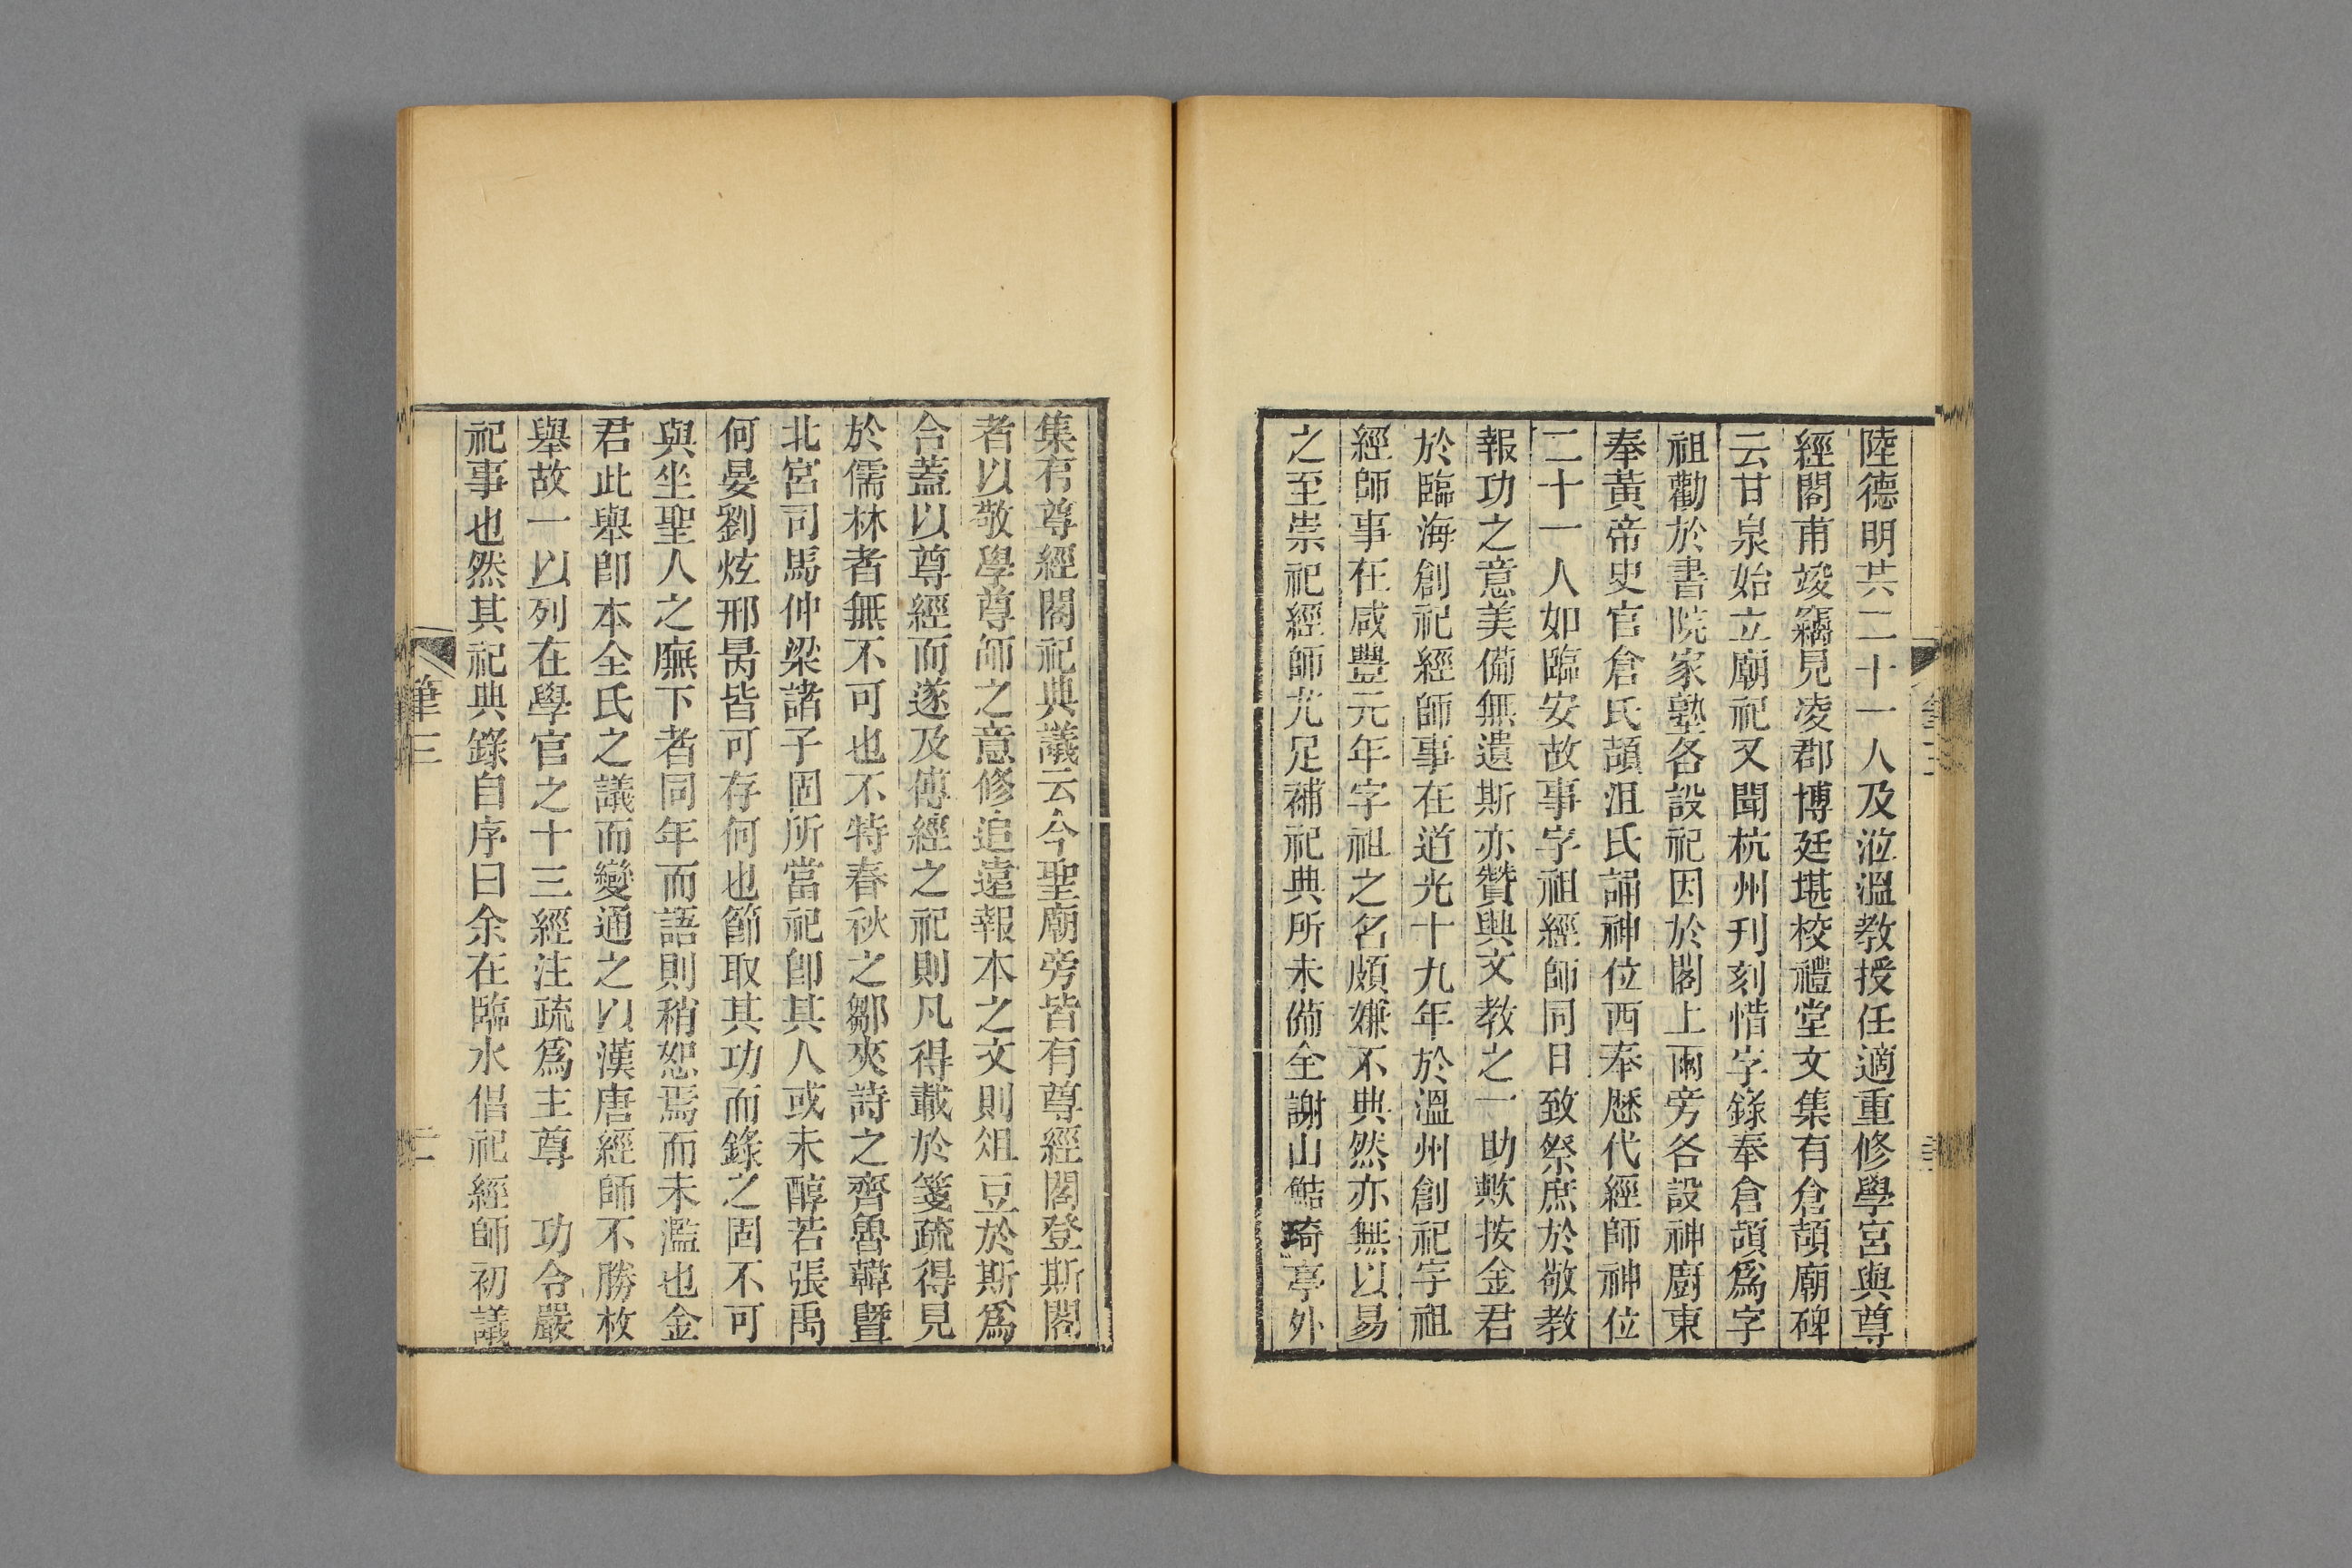 陸德明共二十一人及涖溫教授任適重修學宮與尊
經閣甫竣竊見凌郡博廷堪校禮堂文集有倉頡廟碑
云甘泉始立廟祀又聞杭州刊刻惜字錄奉倉頡為字
祖勸於書院家塾各設祀因於閣上兩旁各設神廚東
奉黃帝史官倉氏頡沮氏誦神位西奉歷代經師神位
二十一人如臨安故事字祖經師同日致祭庶於敬教
報功之意美備無遺斯亦贊興文教之一助歟按金君
於臨海創祀經師事在道光十九年於溫州創祀字祖
經師事在咸豐元年字祖之名頗嫌不典然亦無以易
之至崇祀經師尤足補祀典所未備全謝山鮚琦亭外
集有尊經閣祀典議云今聖廟旁皆有尊經閣登斯閣
者以敬學尊師之意修追遠報本之文則俎豆於斯為
合蓋以尊經而遂及傳經之祀則凡得載於箋疏得見
於儒林者無不可也不特春秋之鄒夾詩之齊魯韓暨
北宮司馬仲梁諸子固所當祀卽其人或未醇若張禹
何晏劉炫邢昺皆可存何也節取其功而錄之固不可
與坐聖人之廡下者同年而語則稍恕焉而未濫也金
君此舉卽本全氏之議而變通之以漢唐經師不勝枚
舉故一以列在學官之十三經注疏為主尊　功令嚴
祀事也然其祀典錄自序曰余在臨水倡祀經師初議
筆三
二